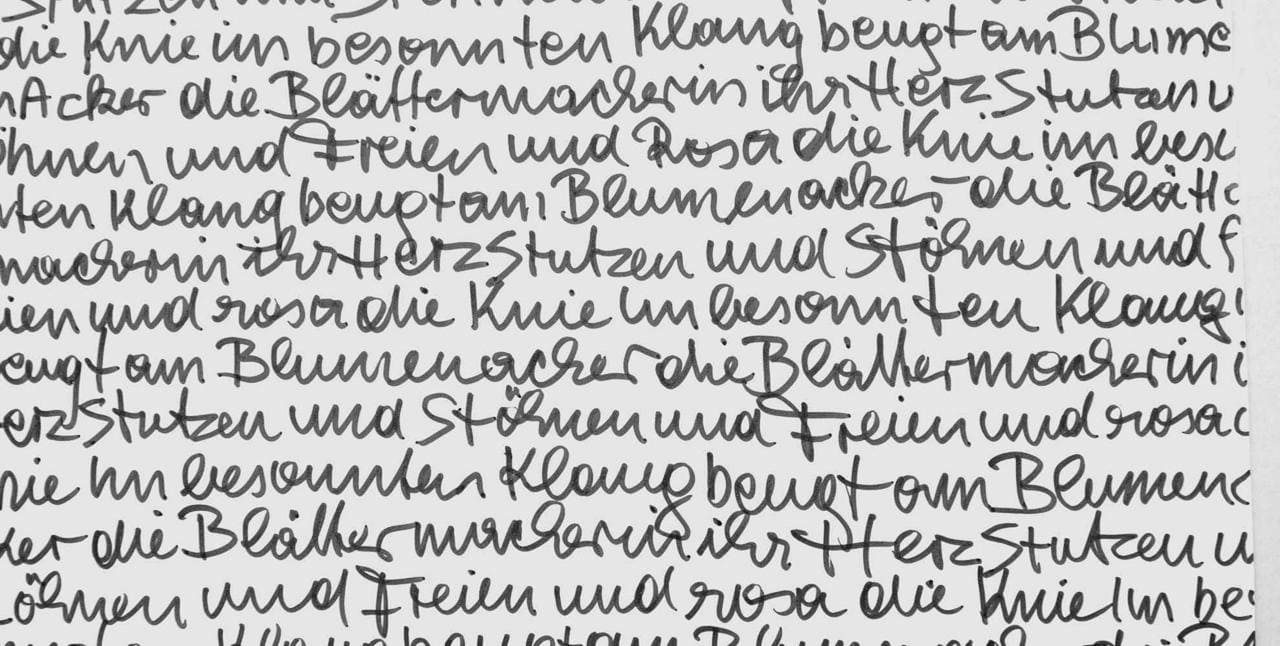 Stutzen und
die Knie im besonnten Klang beugt am Blume
nAcker die Blättermacherin ihr Herz Stutzen u
öhnen und Freien und Rosa die Knie im beso
nten Klang beugt am Blumenacker die Blätte
macherin ihr Herz Stutzen und Stöhnen und f
eien und rosa die Knie Im besonnten Klang b
eugt am Blumenacker die Blättermacherin i
erz Stutzen und Stöhnen und Freien und rosa d
nie Im besonnten Klang beugt am Blumena
ker die Blättermacherin ihr Herz Stutzen u
töhnen und Freien und rosa die Knie Im bes
Klang beugt am Blumenack die Bl